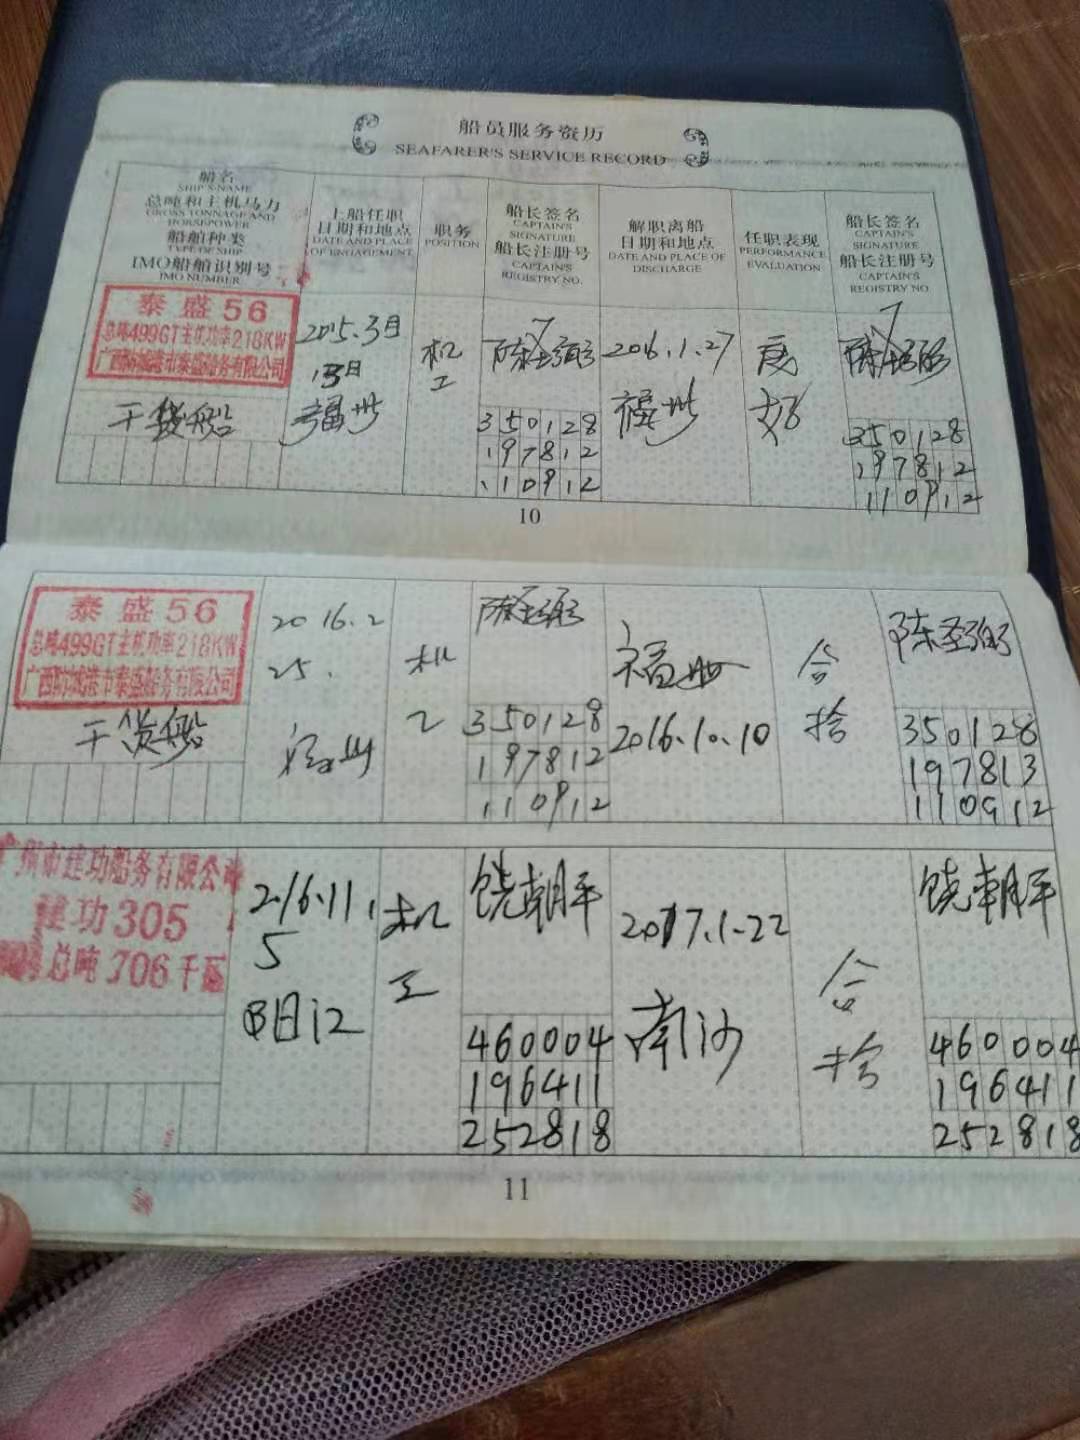 船员服务资历
SEAFARER'S SERVICE RECORD
船名
SHIP'S NAME
总吨和主机马力
GROSS TONNAGE AND
HORSEPOWER
船舶种类
TYPE OF SHIP
IMO船舶识别号
IMO NUMBER
上船任职
日期和地点
DATE AND PLACE
OF ENGAGEMENT
职务
POSITION
船长签名
CAPTAIN'S
SIGNATURE
船长注册号
CAPTAIN'S
REGISTRY NO.
解职离船
日期和地点
DATE AND PLACE OF
DISCHARGE
任职表现
PERFORMANCE
EVALUATION
船长签名
CAPTAIN'S
SIGNATURE
船长注册号
CAPTAIN'S
REGISTRY NO
泰盛56
总吨499GT主机功率218KW
广西防城港市泰盛船务有限公司
干货船
2015.3月
福州
机
工
350128
197812
110912
2016.1.27
福州
良
好
350128
197812
110912
10
泰盛56
总吨499GT主机功率218KW
广西防城港市泰盛船务有限公司
干货船
2016.2
25.
福州
机
工
350128
197812
110912
福州
2016.10.10
合
格
350128
197813
110912
广州市建功船务有限公司
建功305
总吨706千瓦
2016.11.
5
阳江
机
工
饶朝平
460004
196411
252818
2017.1.22
南沙
合
格
饶朝平
460004
196411
252818
11